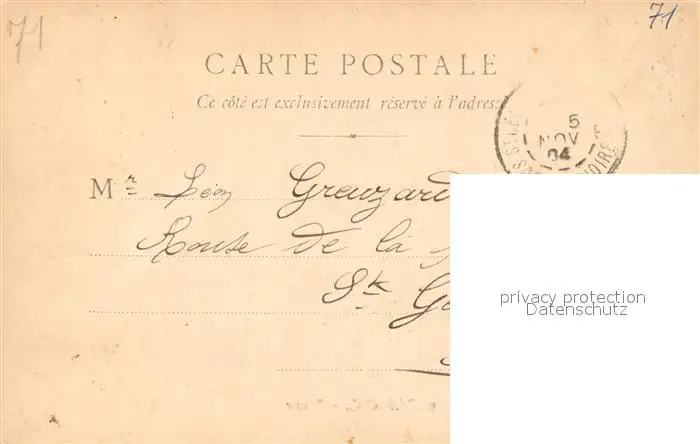 71
71
CARTE POSTALE
Ce côté est exclusivement réservé à l'adresse
5
NOV
04
Mr Léon Greuzard
Route de la
St Ge
privacy protection
Datenschutz